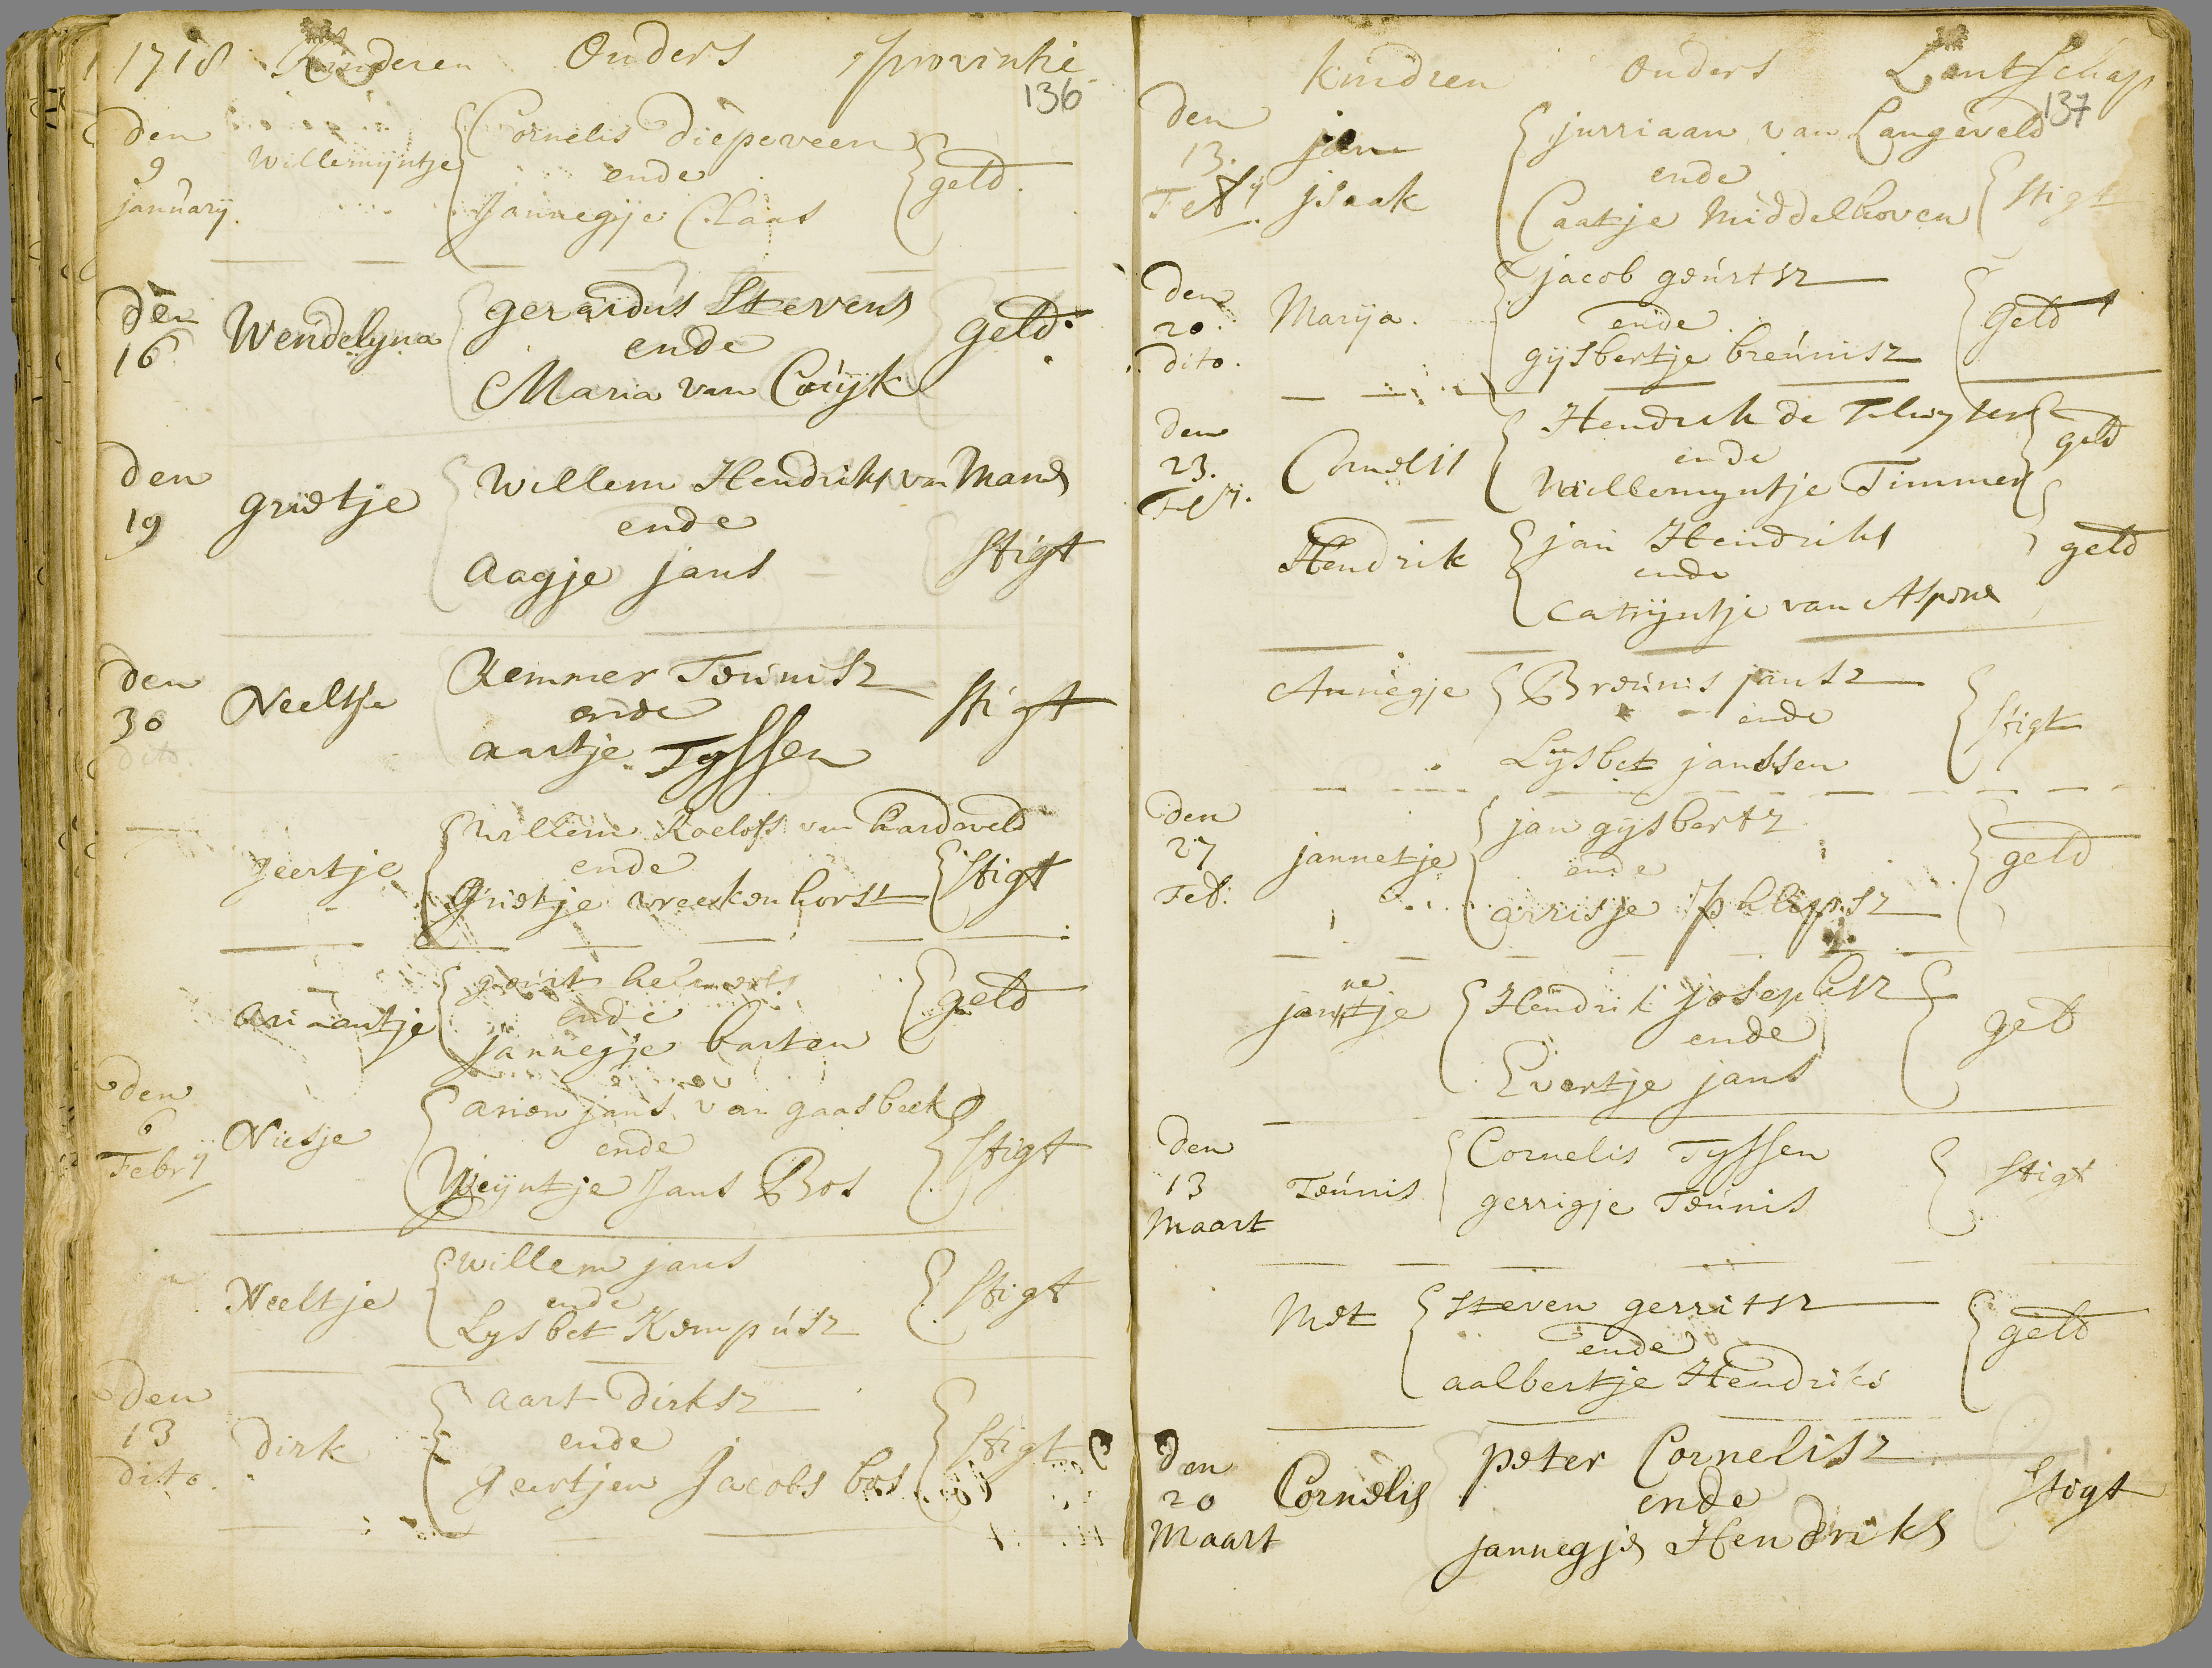 1718 Kinderen Ouders provintie
136
den
9
january.
Willemyntje
Cornelis Diepeveen
ende
Jannegje Claas
geld.
den
16
Wendelyna
gerardus Stevens
ende
Maria van Cuyk
geld.
den
19
grietje
Willem Hendriks van Manes
ende
Aagje jans
Stigt
den
30
dito.
Neeltje
Remmer Teunisz
ende
aartje Tyssen
Stigt
geertje
Willem Roelofs van hardeveld
ende
Grietje vreekenhorst
Stigt
Ariaantje
gourt helmerts
ende
jannegje barten
geld
den
6
Febry
Niesje
arien jans van gaasbeek
ende
Weyntje Jans Bos
Stigt
Neeltje
willem jans
ende
Lysbet Kempusz
Stigt
den
13
dito.
dirk
aart dirksz
ende
geertjen Jacobs bos
Stigt
kindren Ouders Lantschap
137
den
13.
Feb
jan
jsaak
jurriaan van Langeveld
ende
Caatje Middelhoven
Stigt
den
20.
dito.
Marija.
jacob geurtsz
ende
gysbertje breunisz
geld
den
23.
Feb.
Cornelis
Hendrik de
ende
Willemyntje Timmer
geld
Hendrik
jan Hendriks
ende
catryntje van Aspere
geld
Annegje
Breunis jansz
ende
Lysbet janssen
Stigt
den
27
Feb.
jannetje
jan gysbertz
ende
arrisje phlipsz
geld
ne
jantje
Hendrik josephsz
ende
Evertje jans
geld
den
13
Maart
Teunis
Cornelis Tyssen
gerrigje Teunis
Stigt
Met
Steven gerritsz
ende
aalbertje Hendriks
geld
den
20
Maart
Cornelis
peter Cornelisz
ende
jannegje Hendriks
Stigt